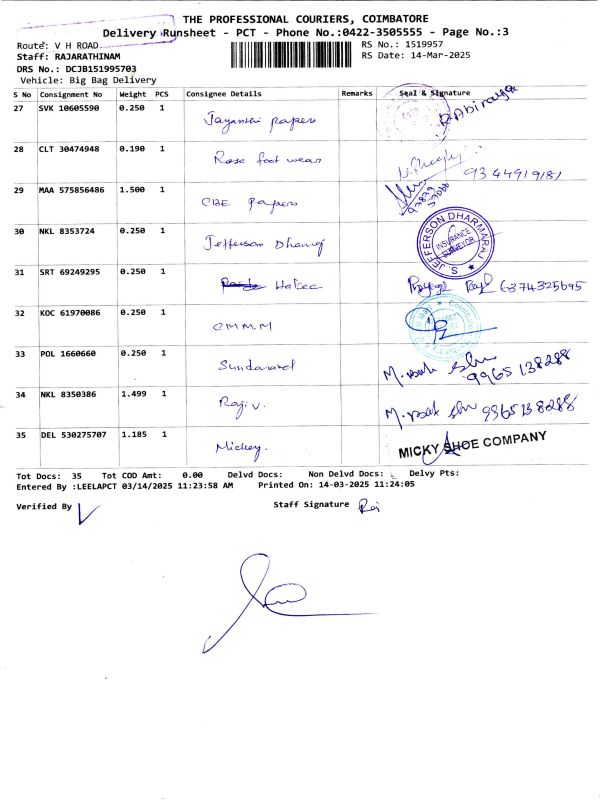 THE PROFESSIONAL COURIERS, COIMBATORE
Delivery Runsheet - PCT - Phone No.:0422-3505555 - Page No.:3
Route: V H ROAD
RS No.: 1519957
Staff: RAJARATHINAM
RS Date: 14-Mar-2025
DRS No.: DCJB151995703
Vehicle: Big Bag Delivery
S No Consignment No Weight PCS Consignee Details Remarks Seal & Signature
27 SVK 10605590 0.250 1 Jayanthi papers R.Abiramya
28 CLT 30474948 0.190 1 Rose foot wear 9344919181
29 MAA 575856486 1.500 1 CBE papers
30 NKL 8353724 0.250 1 Jefferson Dhanraj S. JEFFERSON DHARMARAJ INSURANCE SURVEYOR
31 SRT 69249295 0.250 1 6374325695
32 KOC 61970086 0.250 1 CMM.M
33 POL 1660660 0.250 1 9965138288
34 NKL 8350386 1.499 1 Raji v. 9965138288
35 DEL 530275707 1.185 1 Mickey. MICKY SHOE COMPANY
Tot Docs: 35 Tot COD Amt: 0.00 Delvd Docs: Non Delvd Docs: Delvy Pts:
Entered By :LEELAPCT 03/14/2025 11:23:58 AM Printed On: 14-03-2025 11:24:05
Verified By
Staff Signature Raj